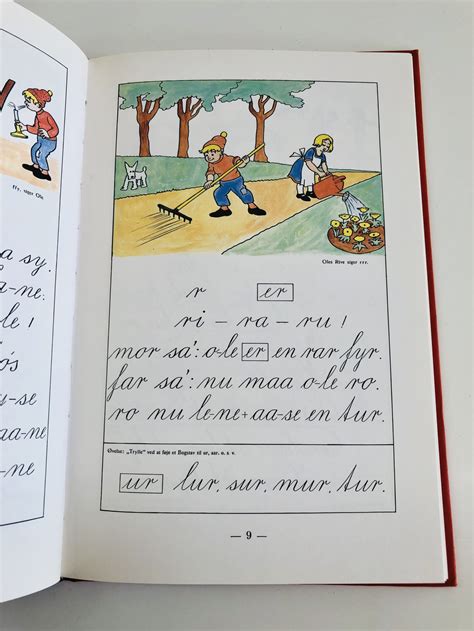 ffy, siger Ole.
a sy.
a-ne.
le !
ó's
y-se
aa-ne
a-ne
Oles Rive siger rrr.
r er
ri - ra - ru !
mor sa': o-le er en rar fyr.
far sa': nu maa o-le ro.
ro nu le-ne + aa-se en tur.
Øvelse: „Trylle" ved at føje et Bogstav til ur, aar, o. s. v.
ur lur, sur, mur, tur.
— 9 —